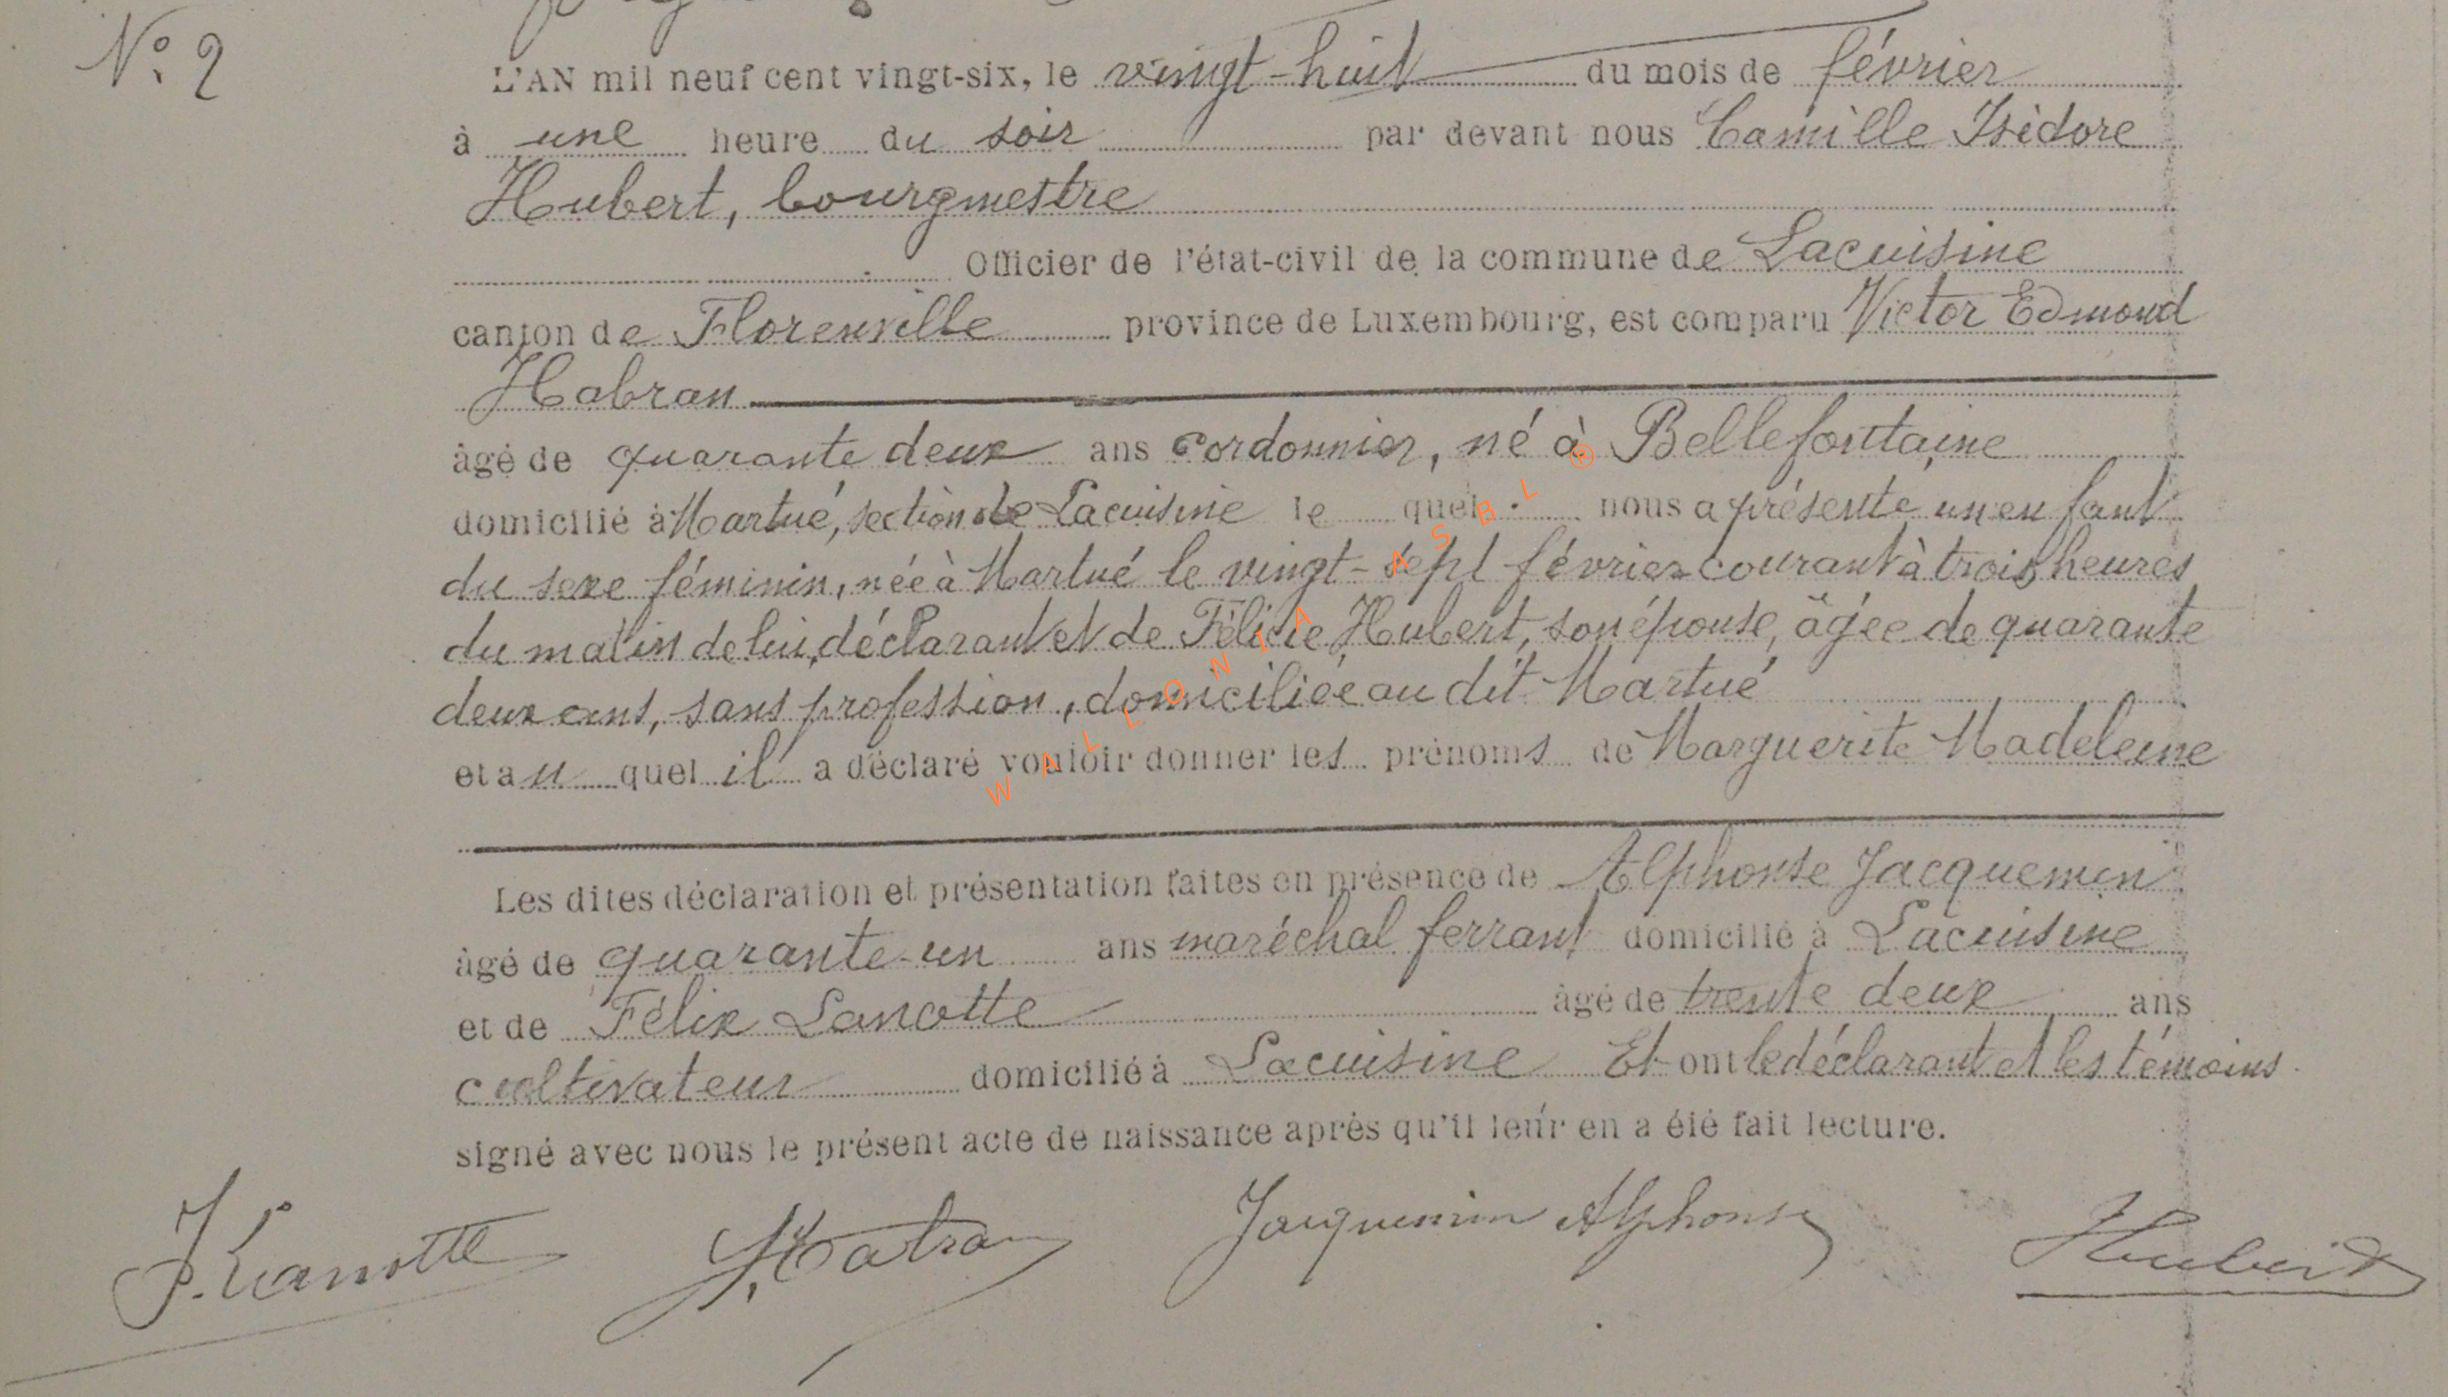 N° 2
L'AN mil neuf cent vingt-six, le vingt-huit du mois de février
à une heure du soir par devant nous Camille Isidore
Hubert, bourgmestre
Officier de l'état-civil de la commune de Lacuisine
canton de Florenville province de Luxembourg, est comparu Victor Edmond
Habran
âgé de quarante deux ans cordonnier, né à Bellefontaine
domicilié à Martué, section de Lacuisine le quel nous a présenté un enfant
du sexe féminin, née à Martué le vingt-sept février courant à trois heures
du matin de lui, déclarant et de Félicie Hubert, son épouse, âgée de quarante
deux ans, sans profession, domiciliée au dit Martué
et au quel il a déclaré vouloir donner les prénoms de Marguerite Madeleine
Les dites déclaration et présentation faites en présence de Alphonse Jacquemin
âgé de quarante-un ans maréchal ferrant domicilié à Lacuisine
et de Félix Lanotte âgé de trente deux ans
cultivateur domicilié à Lacuisine Et ont le déclarant et les témoins
signé avec nous le présent acte de naissance après qu'il leur en a été fait lecture.
F. Lanotte Habran Jacquemin Alphonse Hubert
WALLONIA ASBL ®